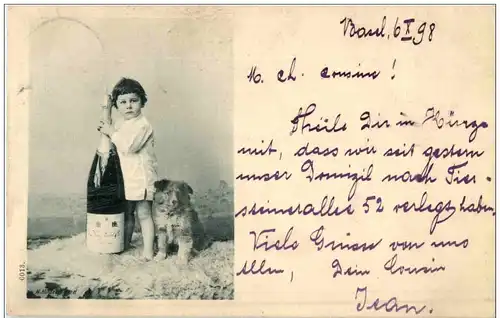 Basel, 6 X 98
M. ch. cousine!
Theile Dir in Kürze
mit, dass wir seit gestern
unser Domizil nach Tier-
steinerallee 52 verlegt haben.
Viele Grüsse von uns
Allen, Dein Cousin
Jean.
6013.